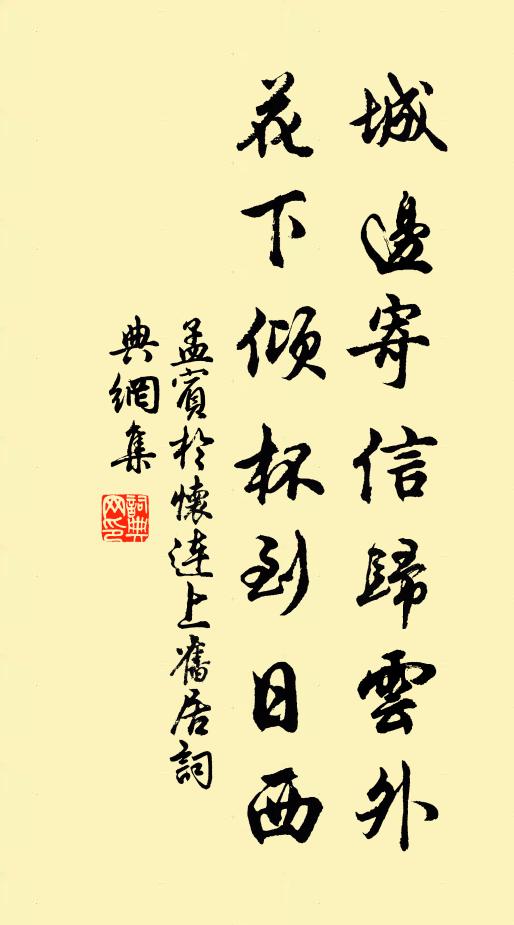 城邊寄信歸雲外
花下傾杯到日西
孟賓於懷連上舊居詞
典網集
詞典網印